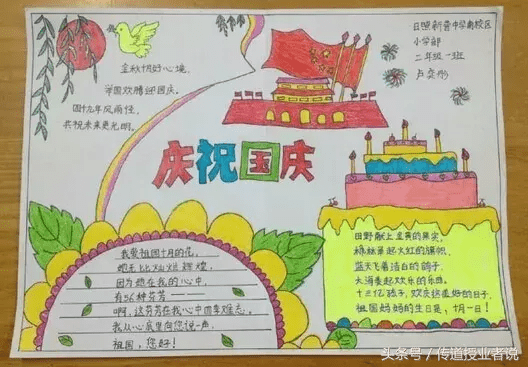 日照新营中学南校区
小学部
二年级一班
金秋十月好心境,
举国欢腾迎国庆。
四十九年风雨径,
共祝未来更光明。
庆祝国庆
我爱祖国十月的花,
她无比灿烂辉煌,
因为她在我的心中,
有56种芬芳
啊,这芬芳在我心中而季难忘。
我从心底里向您说一声,
祖国,您好!
田野献上丰膏的果实,
蓝天飞着洁白的鸽子,
大海奏起欢乐的乐曲。
十三亿孩子,欢庆这美好的日子,
祖国妈妈的生日是,十月一日!
头条号/传道授业者说